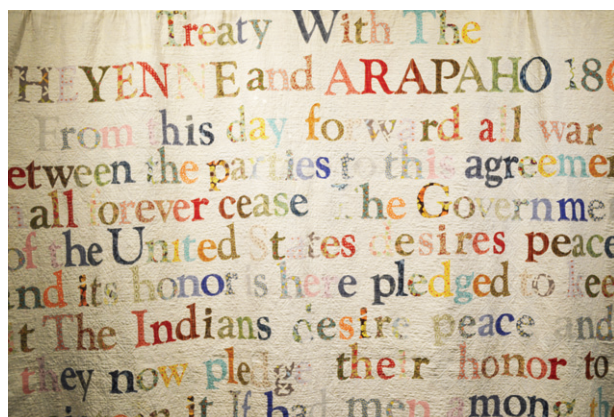 Treaty With The
HEYENNE and ARAPAHO 186
From this day forward all war
etween the parties to this agreemen
all forever cease The Governme
of the United States desires peace
and its honor is here pledged to kee
it The Indians desire peace and
they now pledge their honor to
it If bad men among th